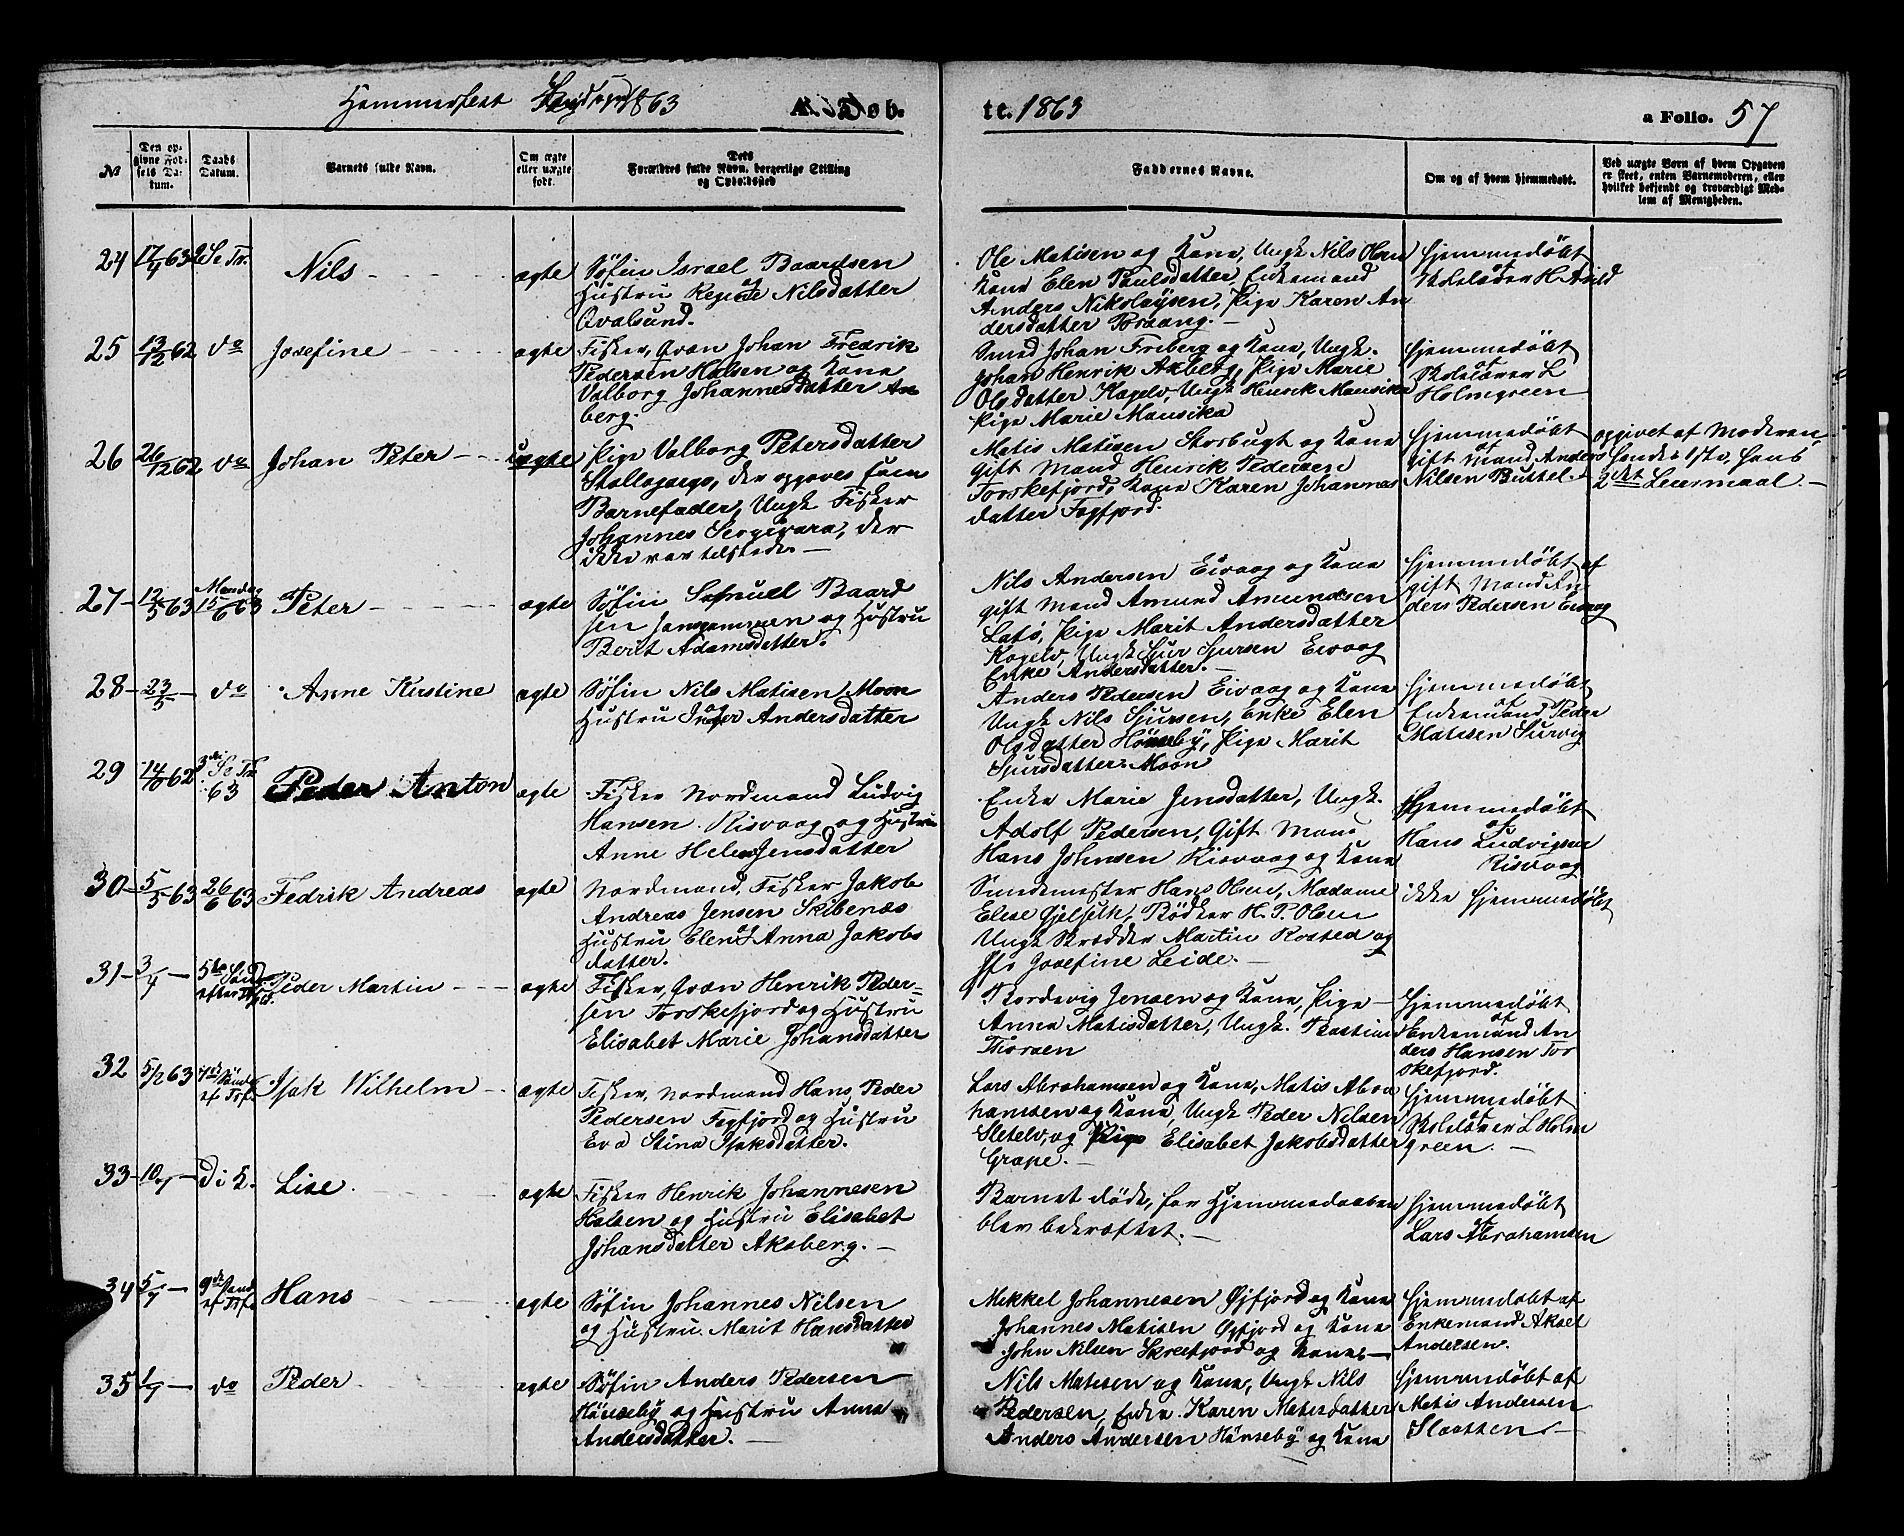 Hammerfest 1863 A. Døb-
te. 1863 a Folio. 57
No
Den opgivne Fødsels Datum.
Daabs Datum.
Barnets fulde Navn.
Om ægte eller uægte født.
Dets Forældres fulde Navn, borgerlige Stilling og Opholdssted
Faddernes Navne.
Om og af hvem hjemmedøbt.
Ved uægte Børn af hvem Opgaven er skeet, enten Barnemoderen, eller hvilket bekjendt og troværdigt Medlem af Menigheden.
24 17/4 63 2 S e Tr. Nils ægte
Søfin Israel Baardsen
Hustru Regine Nilsdatter
Qvalsund.
Ole Matisen og Kone, Ungk Nils Olsen
Kone Elen Paulsdatter, Enkemand
Anders Nikolaysen, Pige Karen An
dersdatter Porsang.
Hjemmedøbt
af
Skolelærer H.
25 13/12 62 do Josefine ægte
Fisker, Qvæn Johan Fredrik
Pedersen Halsen og Kone
Valborg Johannesdatter Ak
berg.
Smed Johan Friberg og Kone, Ungk.
Johan Henrik Akberg, Pige Marie
Olsdatter Kogelv, Ungk Henrik Mansika
Pige Marie Mansika
Hjemmedøbt
af
Skolelærer L
Holmgreen
26 26/12 62 do Johan Peter uægte
Pige Valborg Petersdatter
der opgaves som
Barnefader, Ungk Fisker
Johannes der
ikke var tilstede.
Matis Matisen Storbugt og Kone
gift Mand Henrik Pedersen
Torskefjord, Kone Karen Johannes
datter Fogfjord.
Hjemmedøbt
af
gift Mand Anders
Nilsen Buttel.
opgivet af Moderen,
Hendes 1ste, Hans
2det Leiermaal.
27 12/5 63 Mandag 15/6 63 Peter ægte
Søfin Samuel Baard
sen Jansgammen og Hustru
Berit Adamsdatter.
Nils Andersen Eivaag og Kone
gift Mand Amund Amundsen
Latø, Pige Marit Andersdatter
Kogelv, Ungk Sjur Sjursen Eivaag
Enke Andersdatter.
Hjemmedøbt af
gift Mand An
ders Pedersen Eivaag
28 23/5 do Anne Kirstine ægte
Søfin Nils Matisen Moon
og
Hustru Inger Andersdatter
Anders Pedersen Eivaag og Kone
Ungk Nils Sjursen, Enke Elen
Olsdatter Hønseby, Pige Marit
Sjursdatter Moon
Hjemmedøbt
af
Enkemand Peder
Matisen Survig
29 14/10 62 3die S e Tr. 63 Peder Anton ægte
Fisker Nordmand Ludvig
Hansen Risvaag og Hustru
Anne Helen Jensdatter
Enke Marie Jensdatter, Ungk.
Adolf Pedersen, Gift Mand
Hans Johnsen Risvaag og Kone
Hjemmedøbt
af
Hans Ludvigsen
Risvaag
30 5/5 63 26/6 63 Fedrik Andreas ægte
Nordmand, Fisker Jakob
Andreas Jensen Skibenæs
og
Hustru Elen Anna Jakobs
datter.
Smedemester Hans Olsen, Madame
Elese Gjelseth, Bødker H. P. Olsen
Ungk Skrædder Martin Rosted og
Jfr Josefine Leide.
ikke hjemmedøbt
31 3/4 5te Sønd. efter Trf. Peder Martin ægte
Fisker, Qvæn Henrik Peder-
sen Torskefjord og Hustru
Elisabet Marie Johansdatter
Bordevig Jensen og Kone, Pige
Anna Matisdatter, Ungk. Bastian
Thorsen
Hjemmedøbt
af
Enkemand An
ders Hansen Tor
skefjord.
32 5/2 63 7de Sønd. ef Trf. Isak Wilhelm ægte
Fisker, Nordmand Hans Peder
Pedersen Fogfjord og Hustru
Eva Stina Isaksdatter.
Lars Abrahamsen og Kone, Matis Abra
hamsen og Kone, Ungk Peder Nilsen
Sletelv, og Pige Elisabet Jakobsdatter
Grape.
Hjemmedøbt
af
Skolelærer L Holm
green.
33 10/7 Lise ægte
Fisker Henrik Johannesen
Halsen og Hustru Elisabet
Johansdatter Akberg.
Barnet døde, før Hjemmedaaben
blev bekræftet.
Hjemmedøbt
af
Lars Abrahamsen
34 5/7 9de Sønd. ef Trf. Hans ægte
Søfin Johannes Nilsen
og Hustru Marit Hansdatter
Mikkel Johannesen Øyfjord og Kone
Johannes Matisen Øyfjord og Kone
John Nilsen Skreifjord og Kone
Hjemmedøbt af
Enkemand Aksel
Andersen.
35 1/7 do Peder ægte
Søfin Anders Pedersen
Hønseby og Hustru Anna
Andersdatter.
Nils Matisen og Kone, Ungk Nils
Pedersen, Enke Karen Matisdatter
Anders Andersen Hønseby og Kone
Hjemmedøbt af
Matis Andersen
Slaatten